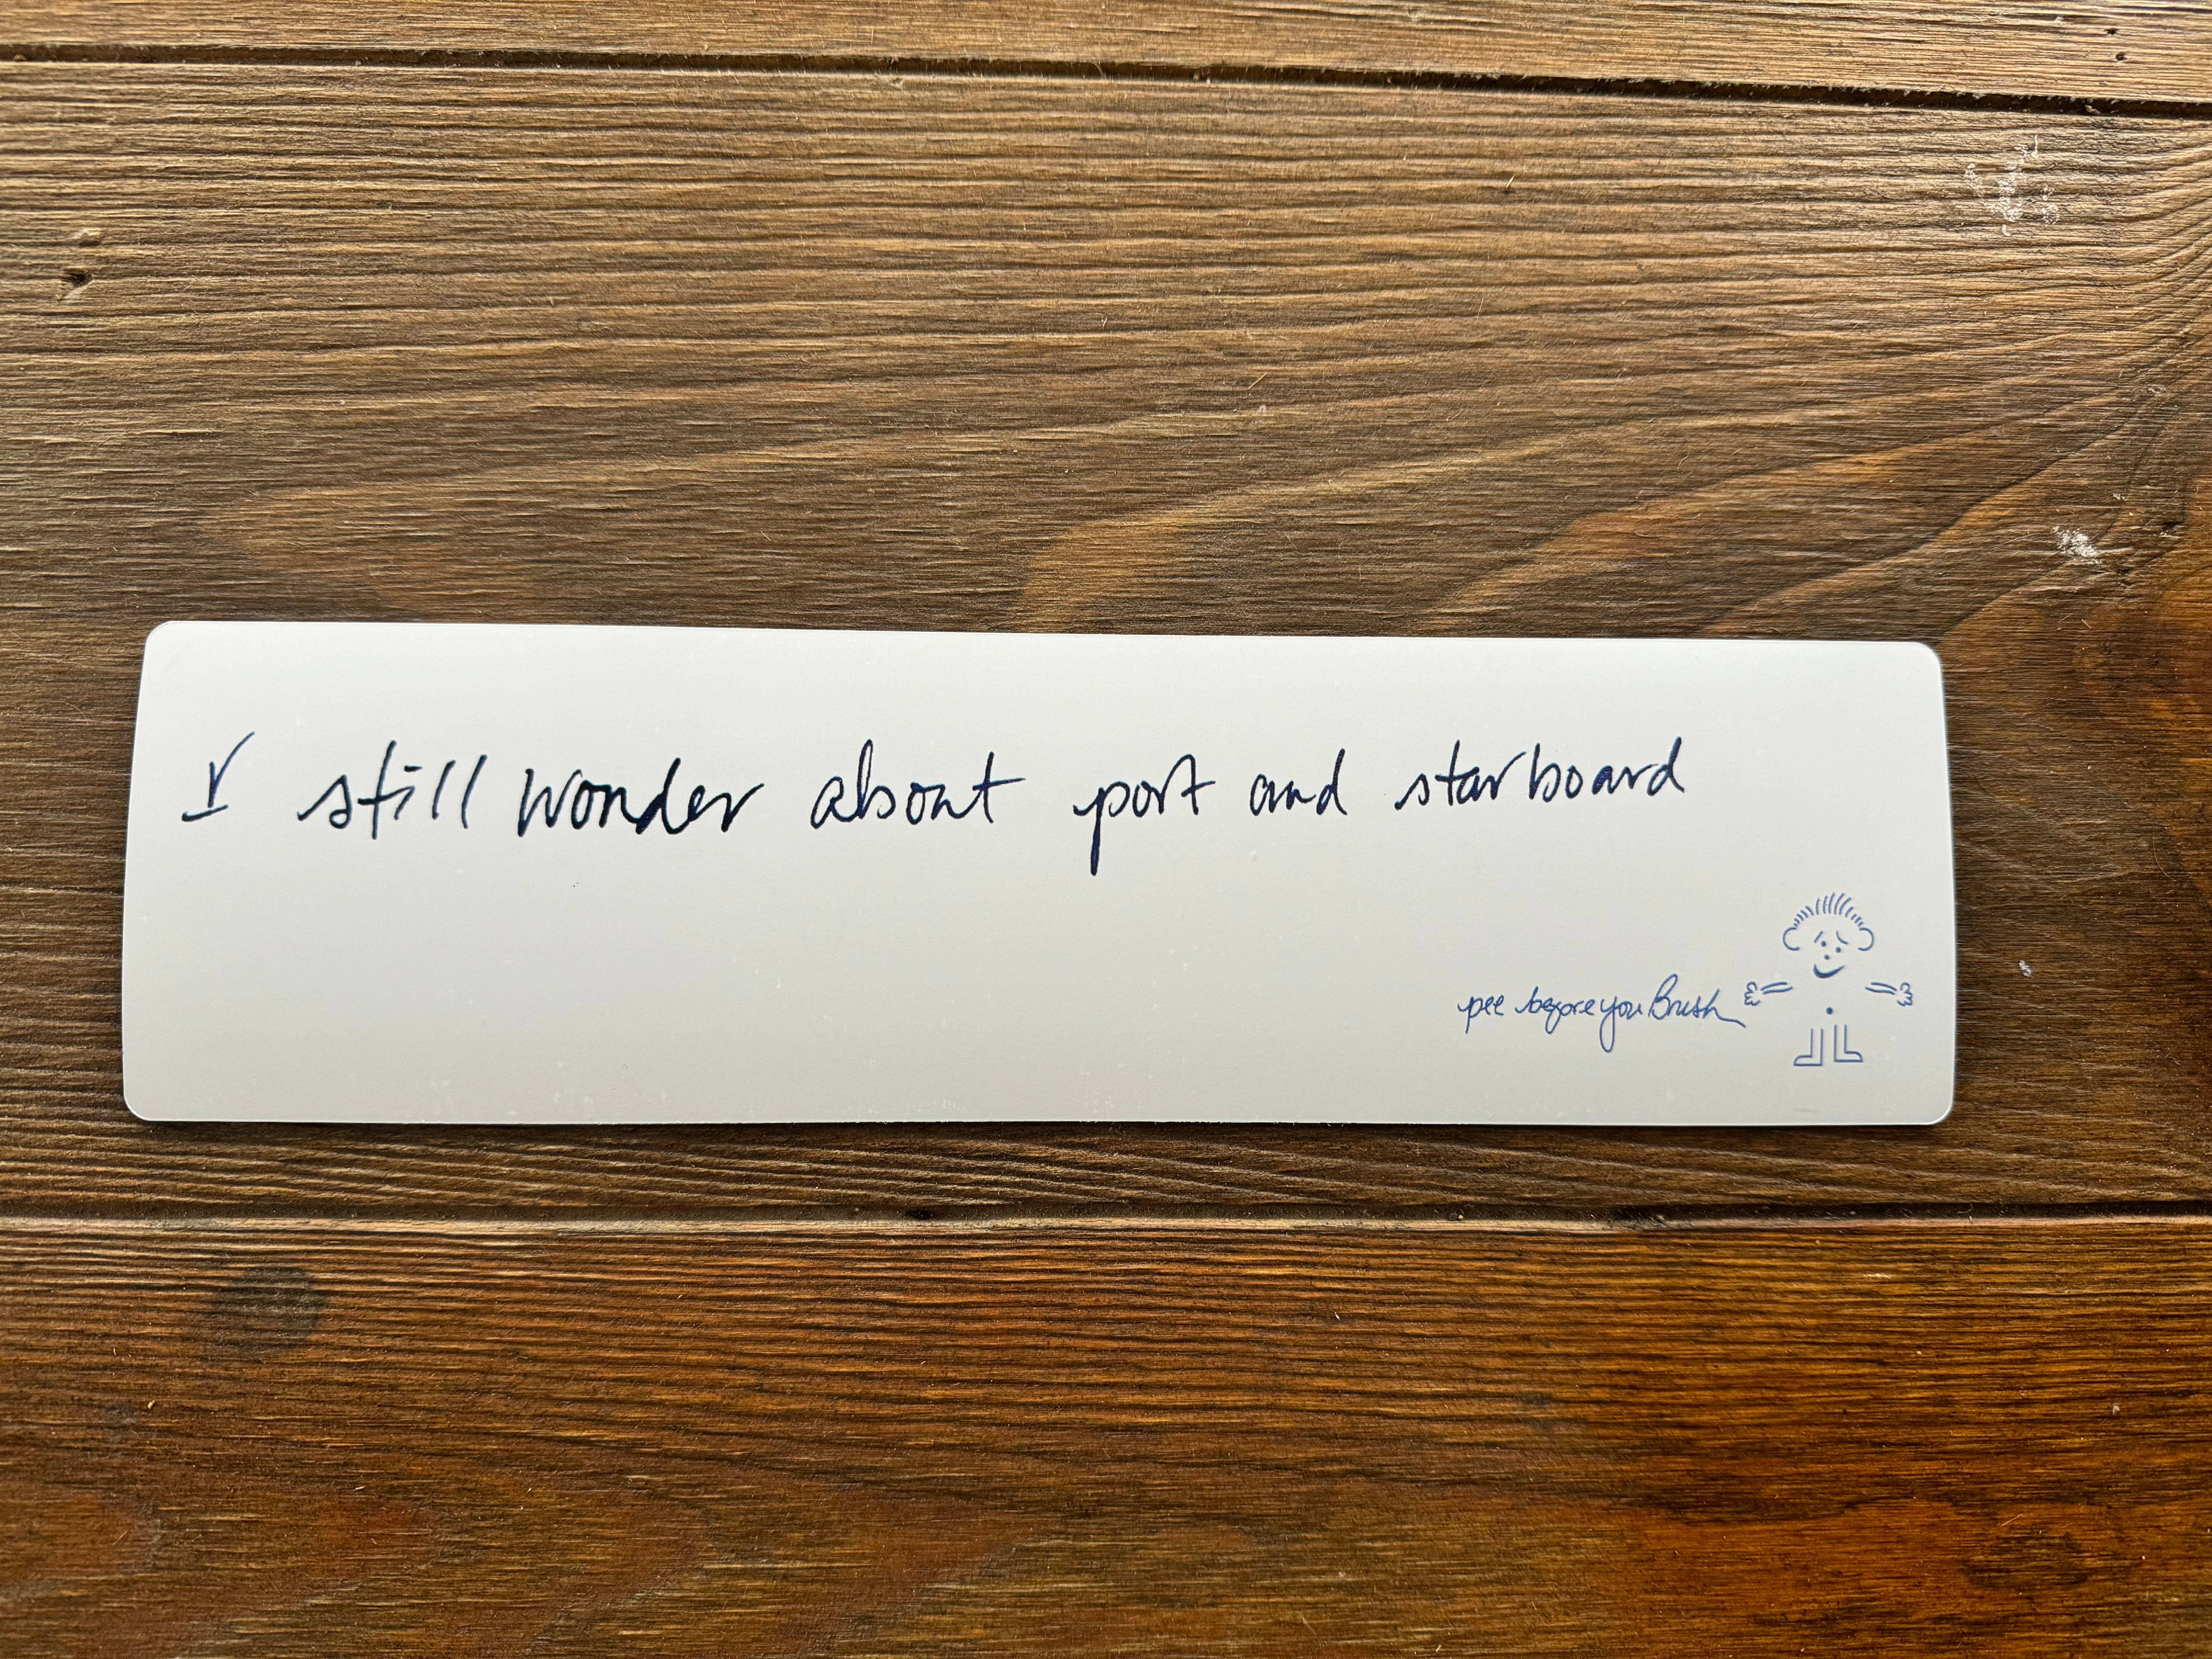 I still wonder about port and starboard
pee before you Brush